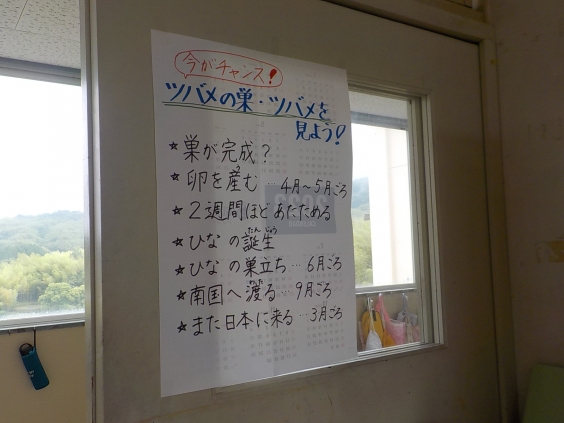 今がチャンス!
ツバメの巣・ツバメを
見よう!
★巣が完成?
★卵を産む…4月~5月ごろ
★2週間ほどあたためる
★ひなの誕生
★ひなの巣立ち…6月ごろ
★南国へ渡る…9月ごろ
★また日本に来る…3月ごろ